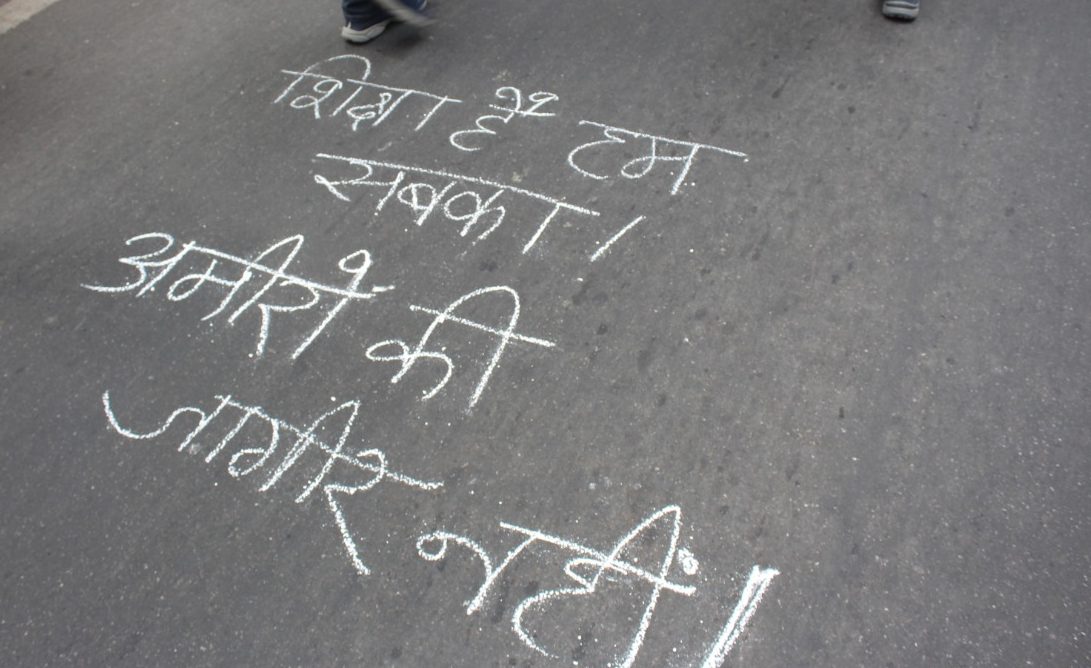 शिक्षा है हम
सबका।
अमीरों की
जागीर नहीं।